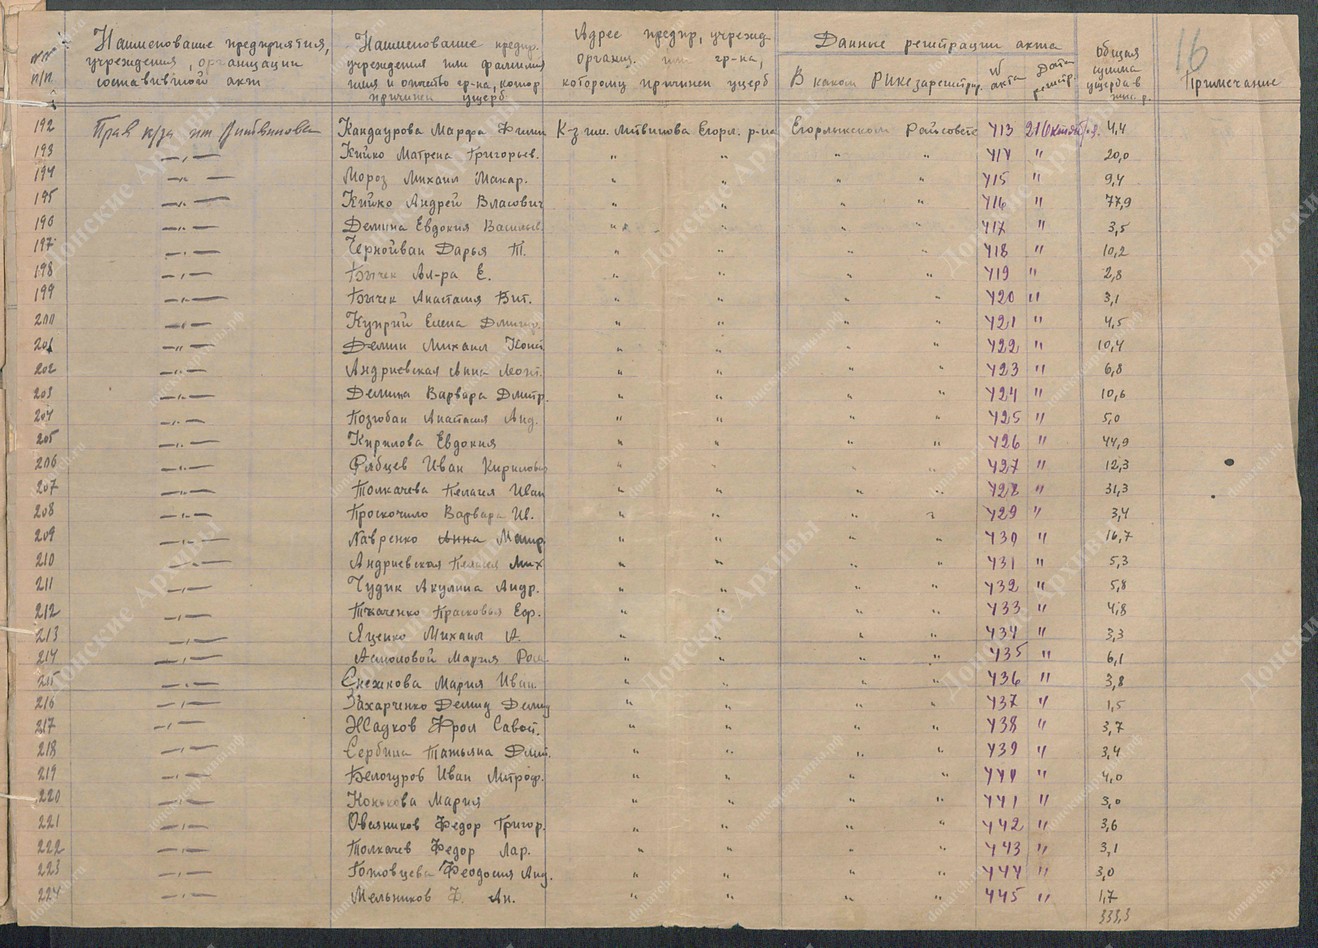 16
№№ п/п. Наименование предприятия, учреждения, организации составившей акт Наименование предпр. учреждения или фамилия имя и отчество гр-на, котор причинен ущерб Адрес предпр, учрежд организ. или гр-на, которому причинен ущерб Данные регистрации акта В каком РИКе зарегистрир. № акта Дата регистр. общая сумма ущерба в тыс. р. Примечание
192 Прав к/за им Литвинова Кандаурова Марфа К-з им. Литвинова Егорл. р-на Егорлыкском Райсовете 413 21 октяб 4,4
193 —"— Кийко Матрена Григорьев. " " " " 414 " 20,0
194 —"— Мороз Михаил Макар. " " " " 415 " 9,4
195 —"— Кийко Андрей Власович " " " " 416 " 77,9
196 —"— Демина Евдокия Васильев. " " " " 417 " 3,5
197 —"— Чернойван Дарья Т. " " " " 418 " 10,2
198 —"— Бычек Ал-ра Е. " " " " 419 " 2,8
199 —"— Бычек Анастасия Вит. " " " " 420 " 3,1
200 —"— Куприй Елена Дмитр. " " " " 421 " 4,5
201 —"— Демин Михаил Конс " " " " 422 " 10,4
202 —"— Андриевская Анна Леонт. " " " " 423 " 6,8
203 —"— Демина Варвара Дмитр. " " " " 424 " 10,6
204 —"— Позгобан Анастасия Анд. " " " " 425 " 5,0
205 —"— Кирилова Евдокия " " " " 426 " 44,9
206 —"— Рябцев Иван Кирилович " " " " 427 " 12,3
207 —"— Толкачева Пелагия Иван " " " " 428 " 31,3
208 —"— Проскочило Варвара Ив. " " " " 429 " 3,4
209 —"— Лавренко Анна " " " " 430 " 16,7
210 —"— Андриевская Пелагея Мих " " " " 431 " 5,3
211 —"— Чудик Акулина Андр. " " " " 432 " 5,8
212 —"— Ткаченко Прасковья Егр. " " " " 433 " 4,8
213 —"— Яценко Михаил А. " " " " 434 " 3,3
214 —"— Асмоловой Мария Ром " " " " 435 " 6,1
215 —"— Снежкова Мария Иван. " " " " 436 " 3,8
216 —"— Захарченко Демид Демид " " " " 437 " 1,5
217 —"— Жадков Фрол Савой. " " " " 438 " 3,7
218 —"— Сербина Татьяна Дмит. " " " " 439 " 3,4
219 —"— Белогуров Иван Митроф. " " " " 440 " 4,0
220 —"— Конькова Мария " " " " 441 " 3,0
221 —"— Овсянников Федор Григор. " " " " 442 " 3,6
222 —"— Толкачев Федор Лар. " " " " 443 " 3,1
223 —"— Готовцева Феодосия Анд. " " " " 444 " 3,0
224 —"— Мельников Ф. Ан. " " " " 445 " 1,7
333,3